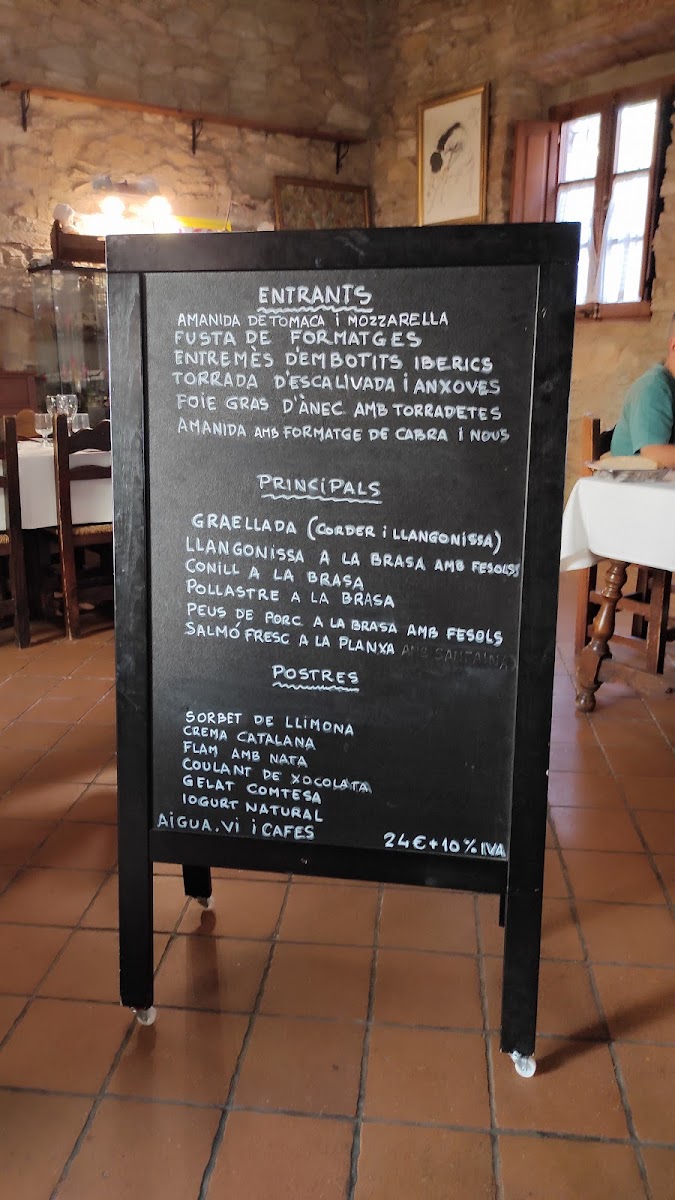 ENTRANTS
AMANIDA DE TOMACA i MOZZARELLA
FUSTA DE FORMATGES
ENTREMÈS D'EMBOTITS IBERICS
TORRADA D'ESCALIVADA i ANXOVES
FOIE GRAS D'ÀNEC AMB TORRADETES
AMANIDA AMB FORMATGE DE CABRA i NOUS
PRINCiPALS
GRAELLADA (CORDER i LLANGONISSA)
LLANGONISSA A LA BRASA AMB FESOLS
CONILL A LA BRASA
POLLASTRE A LA BRASA
PEUS DE PORC A LA BRASA AMB FESOLS
SALMÓ FRESC A LA PLANXA AMB SAMFAINA
POSTRES
SORBET DE LLIMONA
CREMA CATALANA
FLAM AMB NATA
COULANT DE XOCOLATA
GELAT COMTESA
IOGURT NATURAL
AiGUA. Vi i CAFES
24€+10% IVA